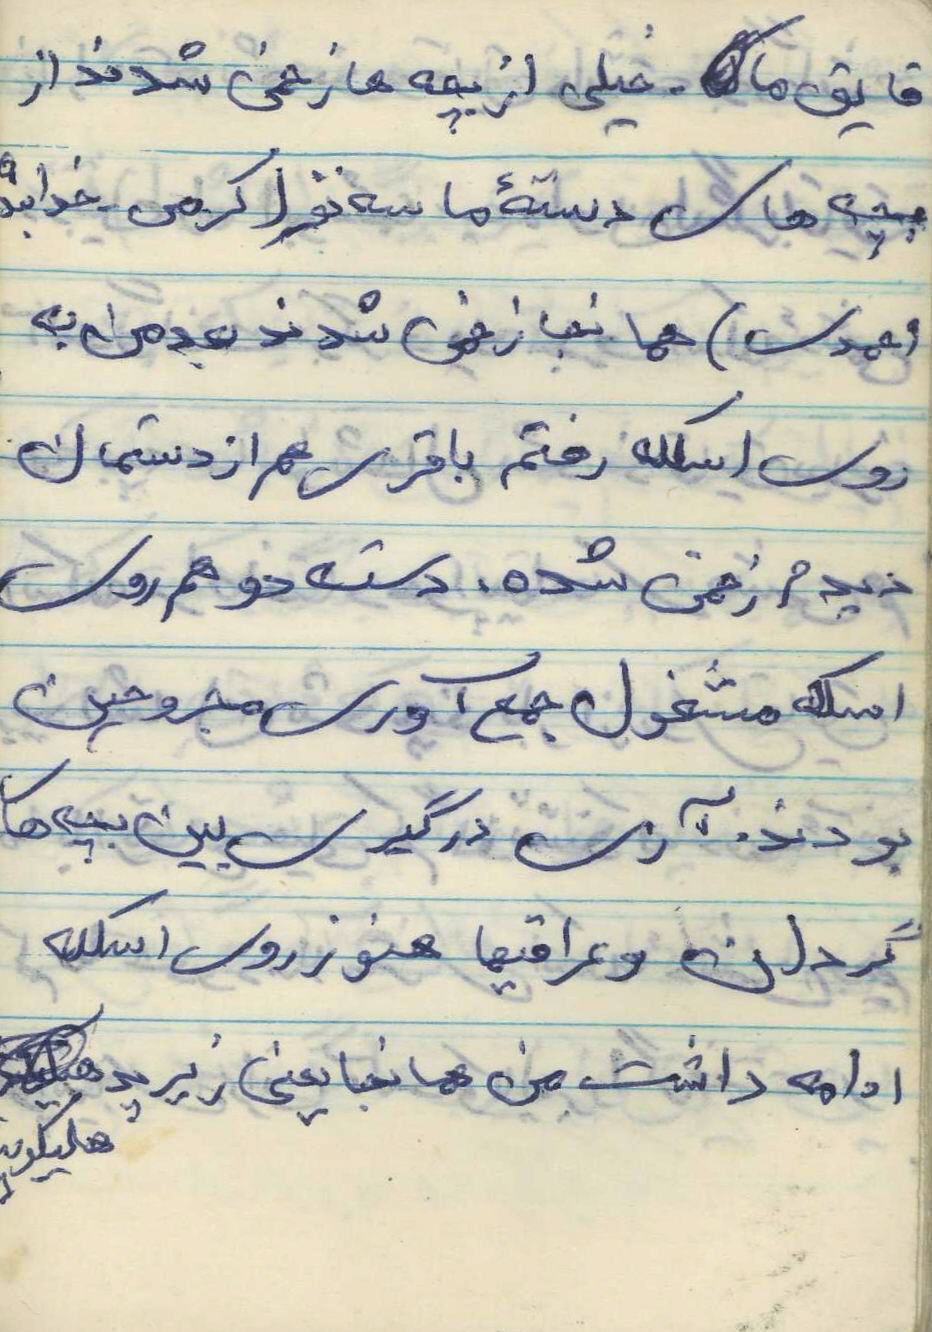 قایق ما. خیلی از بچه ها زخمی شدند از
بچه های دستهٔ ما سه نفر (کرمی
مهدی) همانجا زخمی شدند بعد من به
روی اسکله رفتم باقری هم از دستمان
دیدم زخمی شده. دسته دو هم روی
اسکله مشغول جمع آوری مجروحین
بودند. آری درگیری بین بچه ها
گردان و عراقیها هنوز روی اسکله
ادامه داشت من همانجا یعنی زیر پد
هلیکوپتر